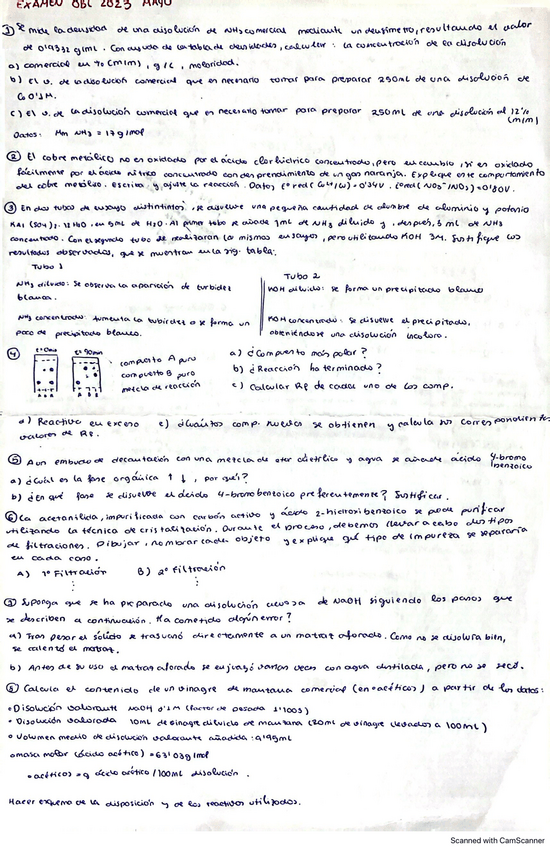 EXAMEN OBL 2023 MAYO
① Se mide la densidad de una disolución de NH3 comercial mediante un densímetro, resultando el valor
de 0'9551 g/ml. Con ayuda de la tabla de densidades, calcular: la concentración de la disolución
a) comercial en % (m/m), g/L, molaridad.
b) El v. de la disolución comercial que es necesario tomar para preparar 250ml de una disolución de
0'1M.
c) El v. de la disolución comercial que es necesario tomar para preparar 250ml de una disolución al 12%
(m/m)
Datos: Mm NH3 = 17 g/mol
② El cobre metálico no es oxidado por el ácido clorhídrico concentrado, pero en cambio, sí es oxidado
fácilmente por el ácido nítrico concentrado con desprendimiento de un gas naranja. Explique este comportamiento
del cobre metálico. Escriba y ajuste la reacción. Datos E° red ( = 0'34V. = 0'80V.
③ En dos tubos de ensayo distintintos, se disuelve una pequeña cantidad de alumbre de aluminio y potasio
KAl(SO4)2·12H2O, en 5ml de H2O. Al primer tubo se añade 1ml de NH3 diluido y, después, 3 ml de NH3
concentrado. Con el segundo tubo se realizaran los mismos ensayos, pero utilizando KOH 3M. Justifique los
resultados observados, que se muestran en la sig. tabla:
Tubo 1
Tubo 2
NH3 diluido: se observa la aparición de turbidez
blanca.
KOH diluido: se forma un precipitado blanco
NH3 concentrado: aumenta la turbidez o se forma un
poco de precipitado blanco.
KOH concentrado: se disuelve el precipitado,
obteniéndose una disolución incolora.
④ t=0min t=90min
compuesto A puro
compuesto B puro
mezcla de reacción
a) ¿Compuesto más polar?
b) ¿Reacción ha terminado?
c) Calcular Rf de cada uno de los comp.
d) Reactivo en exceso e) ¿Cuántos comp. nuevos se obtienen y calcula sus correspondientes
valores de Rf.
⑤ A un embudo de decantación con una mezcla de éter dietílico y agua se añade ácido 4-bromo
benzoico
a) ¿Cuál es la fase orgánica ↑ ↓, por qué?
b) ¿En qué fase se disuelve el ácido 4-bromobenzoico preferentemente? Justificar.
⑥ La acetanilida, impurificada con carbón activo y ácido 2-hidroxibenzoico se puede purificar
utilizando la técnica de cristalización. Durante el proceso, debemos llevar a cabo dos tipos
de filtraciones. Dibujar, nombrar cada objeto y explique qué tipo de impureza se separaría
en cada caso.
A) 1ª Filtración B) 2ª Filtración
⑦ Suponga que se ha preparado una disolución acuosa de NaOH siguiendo los pasos que
se describen a continuación. Ha cometido algún error?
a) Tras pesar el sólido se trasvasó directamente a un matraz aforado. Como no se disolvía bien,
se calentó el matraz.
b) Antes de su uso el matraz aforado se enjuagó varias veces con agua destilada, pero no se secó.
⑧ Calcula el contenido de un vinagre de manzana comercial (en °acéticos) a partir de los datos:
• Disolución valorante NaOH 0'1M (factor de pesada 1'1003)
• Disolución valorada 10ml de vinagre diluido de manzana (20ml de vinagre llevados a 100ml)
• Volumen medio de disolución valorante añadida: 9'95ml
• masa molar (ácido acético) = 63'03g/mol
• °acéticos = g ácido acético / 100ml disolución.
Hacer esquema de la disposición y de los reactivos utilizados.
Scanned with CamScanner